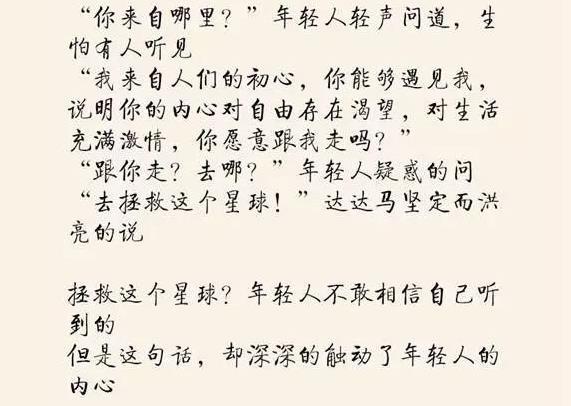 “你来自哪里？”年轻人轻声问道，生
怕有人听见
“我来自人们的初心，你能够遇见我，
说明你的内心对自由存在渴望，对生活
充满激情，你愿意跟我走吗？”
“跟你走？去哪？”年轻人疑惑的问
“去拯救这个星球！”达达马坚定而洪
亮的说
拯救这个星球？年轻人不敢相信自己听
到的
但是这句话，却深深的触动了年轻人的
内心